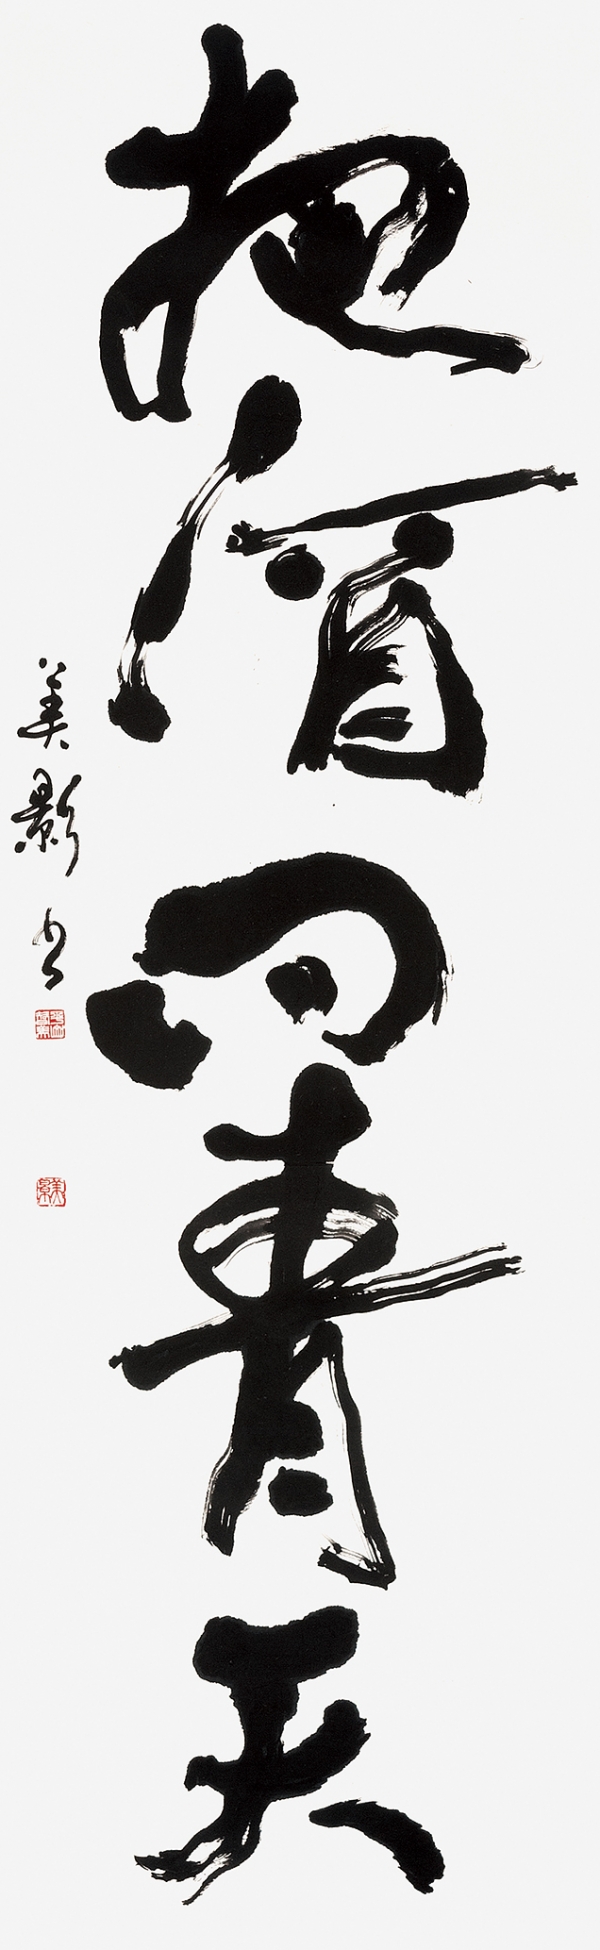 把酒問青天
美影書